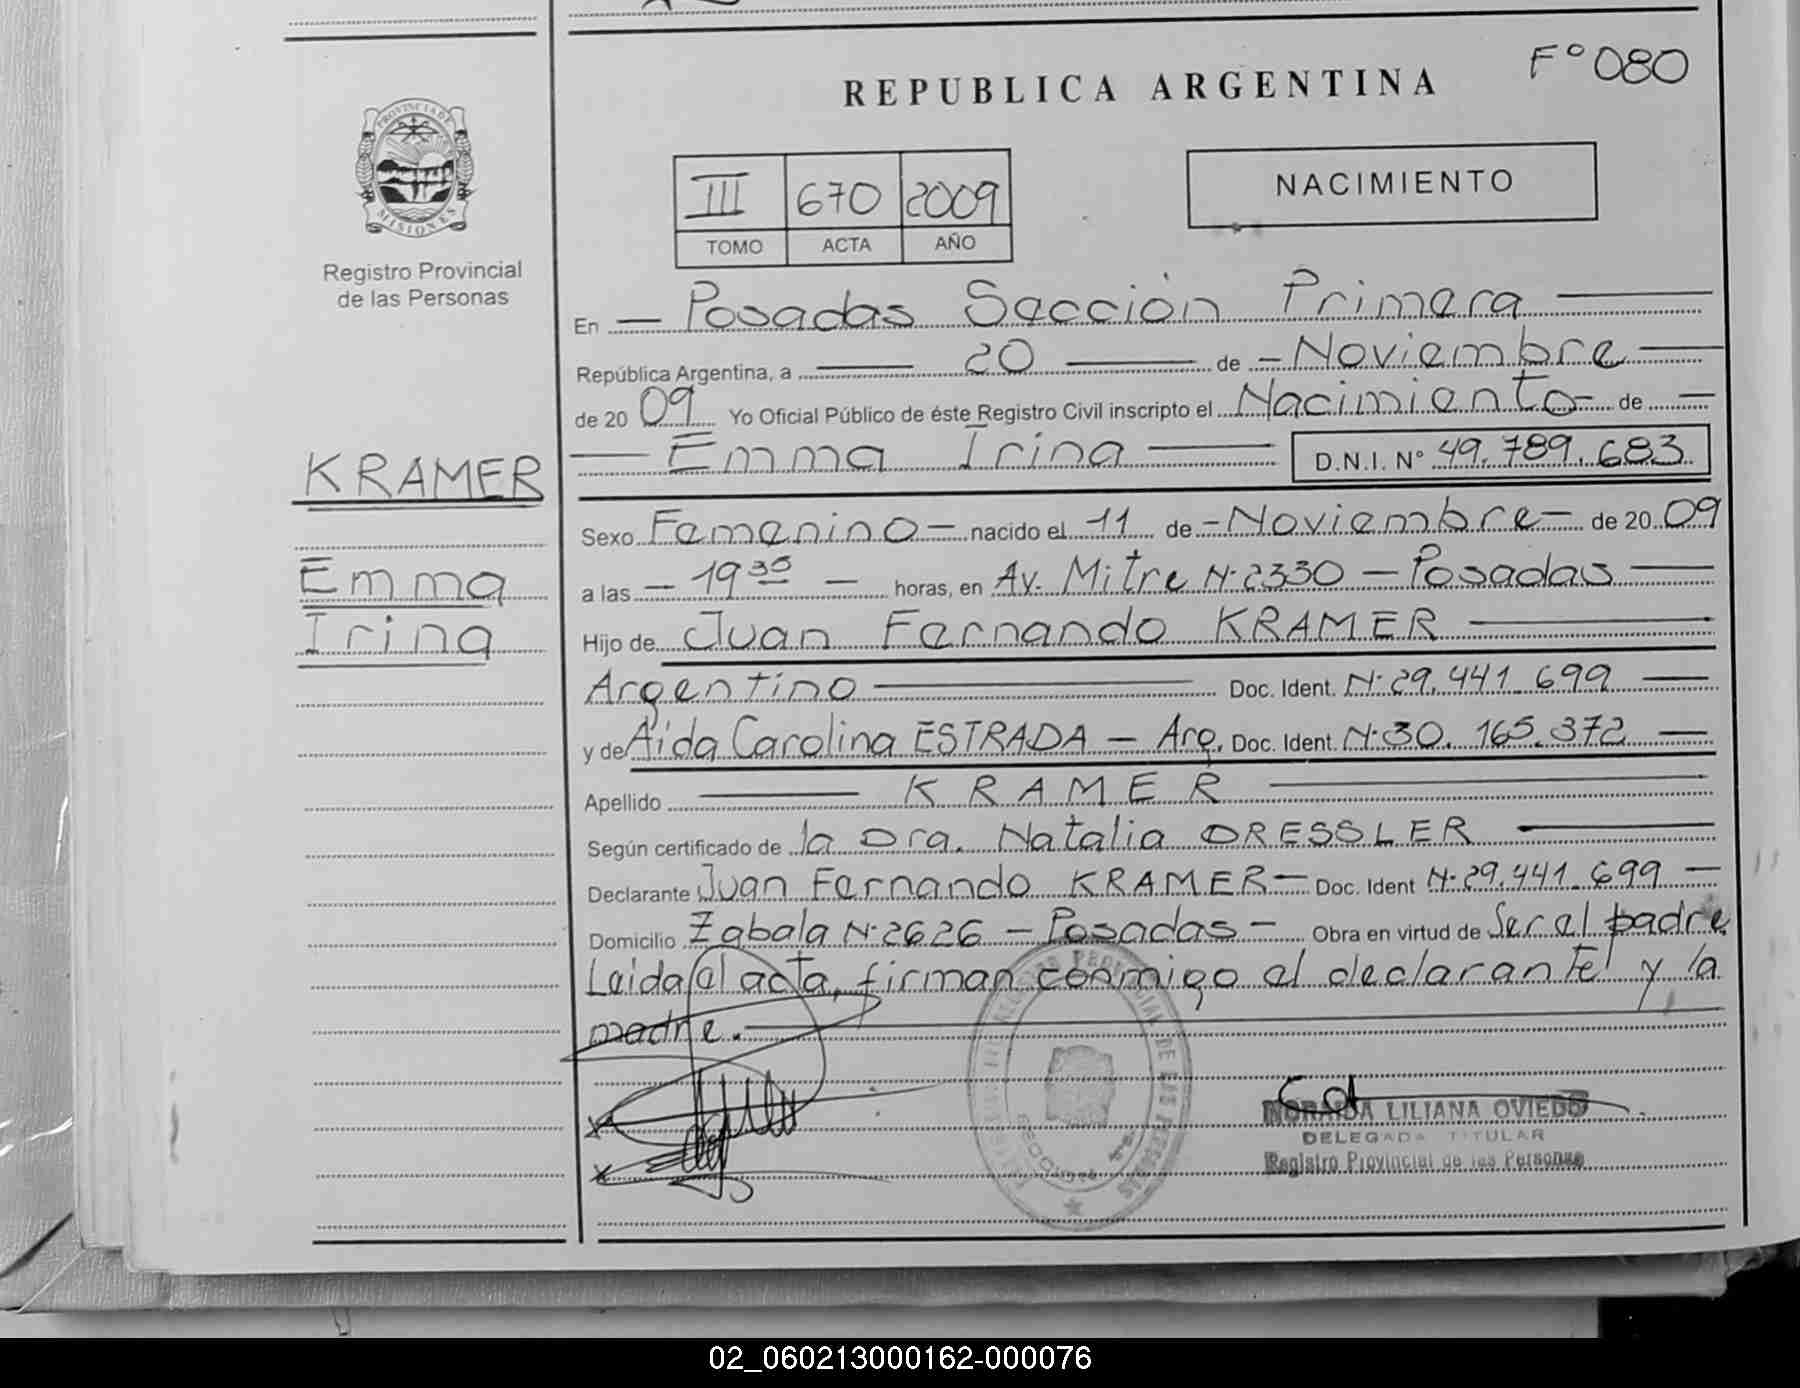 F° 080
REPUBLICA ARGENTINA
PROVINCIA DE MISIONES
Registro Provincial
de las Personas
III 670 2009
TOMO ACTA AÑO
NACIMIENTO
En Posadas Sección Primera
República Argentina, a 20 de Noviembre
de 20 09 Yo Oficial Público de éste Registro Civil inscripto el Nacimiento de
Emma Irina D.N.I. N° 49.789.683
KRAMER
Emma
Irina
Sexo Femenino nacido el 11 de Noviembre de 20 09
a las 19 30 horas, en Av. Mitre N·2330 – Posadas
Hijo de Juan Fernando KRAMER
Argentino Doc. Ident. N·29.441.699
y de Aida Carolina ESTRADA – Arg. Doc. Ident N·30.165.372
Apellido KRAMER
Según certificado de la Dra. Natalia DRESSLER
Declarante Juan Fernando KRAMER – Doc. Ident N·29.441.699
Domicilio Zabala N·2626 – Posadas – Obra en virtud de Ser el padre
Leida el acta, firman conmigo el declarante y la
madre.
NORAIDA LILIANA OVIEDO
DELEGADA TITULAR
Registro Provincial de las Personas
02_060213000162-000076